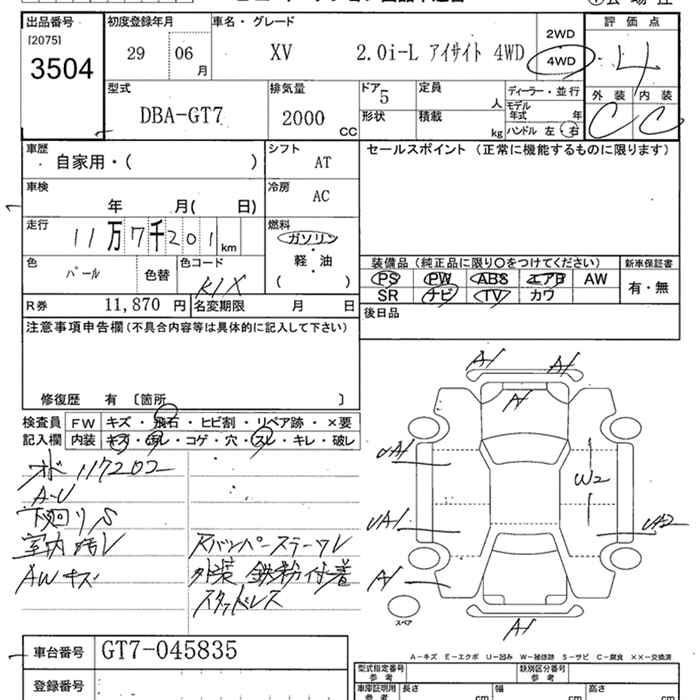 出品番号
[2075]
3504
初度登録年月
29 06
月
車名・グレード
XV 2.0i-L アイサイト 4WD
2WD
4WD
評価点
4
外装 内装
C C
型式
DBA-GT7
排気量
2000
CC
ドア
5
定員
人
形状
積載
kg
ディーラー・並行
モデル
年式 年
ハンドル 左 右
車歴
自家用・( )
シフト
AT
車検
年 月( 日)
冷房
AC
走行
11万7千201km
燃料
ガソリン
軽・油
( )
色
パール
色替
色コード
K1X
R券 11,870 円
名変期限 月 日
セールスポイント (正常に機能するものに限ります)
装備品 (純正品に限り○をつけてください)
新車保証書
PS PW ABS エアB AW
SR ナビ TV カワ
有・無
後日品
注意事項申告欄(不具合内容等は具体的に記入して下さい)
修復歴 有 〔箇所 〕
検査員
記入欄
FW キズ・飛石・ヒビ割・リペア跡・×要
内装 キズ・汚レ・コゲ・穴・スレ・キレ・破レ
オド 117202
下廻りS
室内汚レ
AWキズ
Rバンパーステーワレ
外装 鉄粉付着
スタッドレス
A1 A1
A1
UA1
W2
UA1
UA2
A1
A1
スペア
A-キズ E-エクボ U-凹み W-補修跡 S-サビ C-腐食 ××-交換済
車台番号 GT7-045835
登録番号
型式指定番号
参考
類別区分番号
参考
車庫証明用
参考
長さ cm
幅 cm
高さ cm